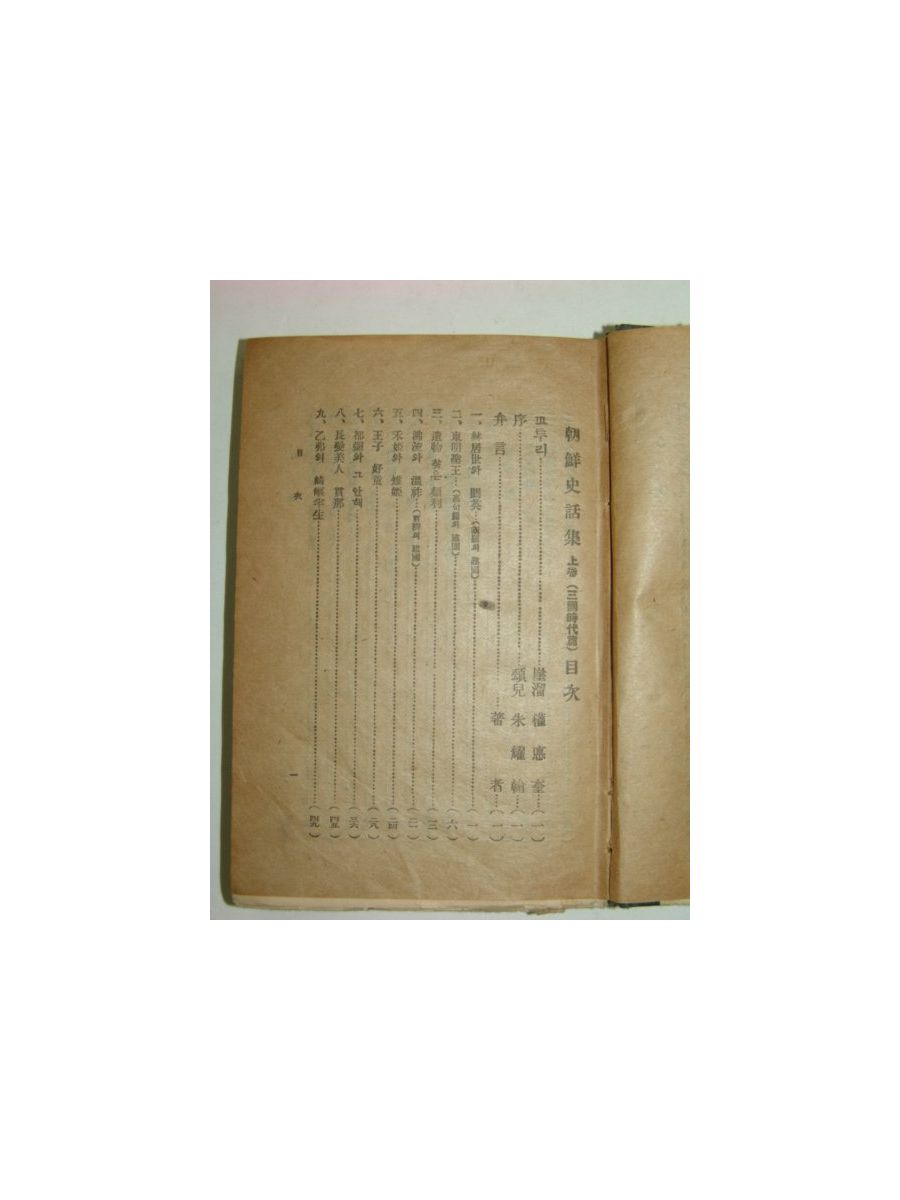 朝鮮史話集 上卷(三國時代篇) 目次
ᄭᅩ투리 崖溜 權悳奎 (一)
序 頌兒 朱耀翰 (一)
弁言 著者 (一)
一、赫居世와 閼英 (新羅의 建國) (一)
二、東明聖王 (高句麗의 建國) (六)
三、遺物 찾은 類利 (一三)
四、沸流와 溫祚 (百濟의 建國) (二一)
五、禾姬와 雉姬 (二四)
六、王子 好童 (二八)
七、都彌와 그 안해 (三六)
八、長髮美人 貫那 (四五)
九、乙弗의 半生 (四九)
目次 一